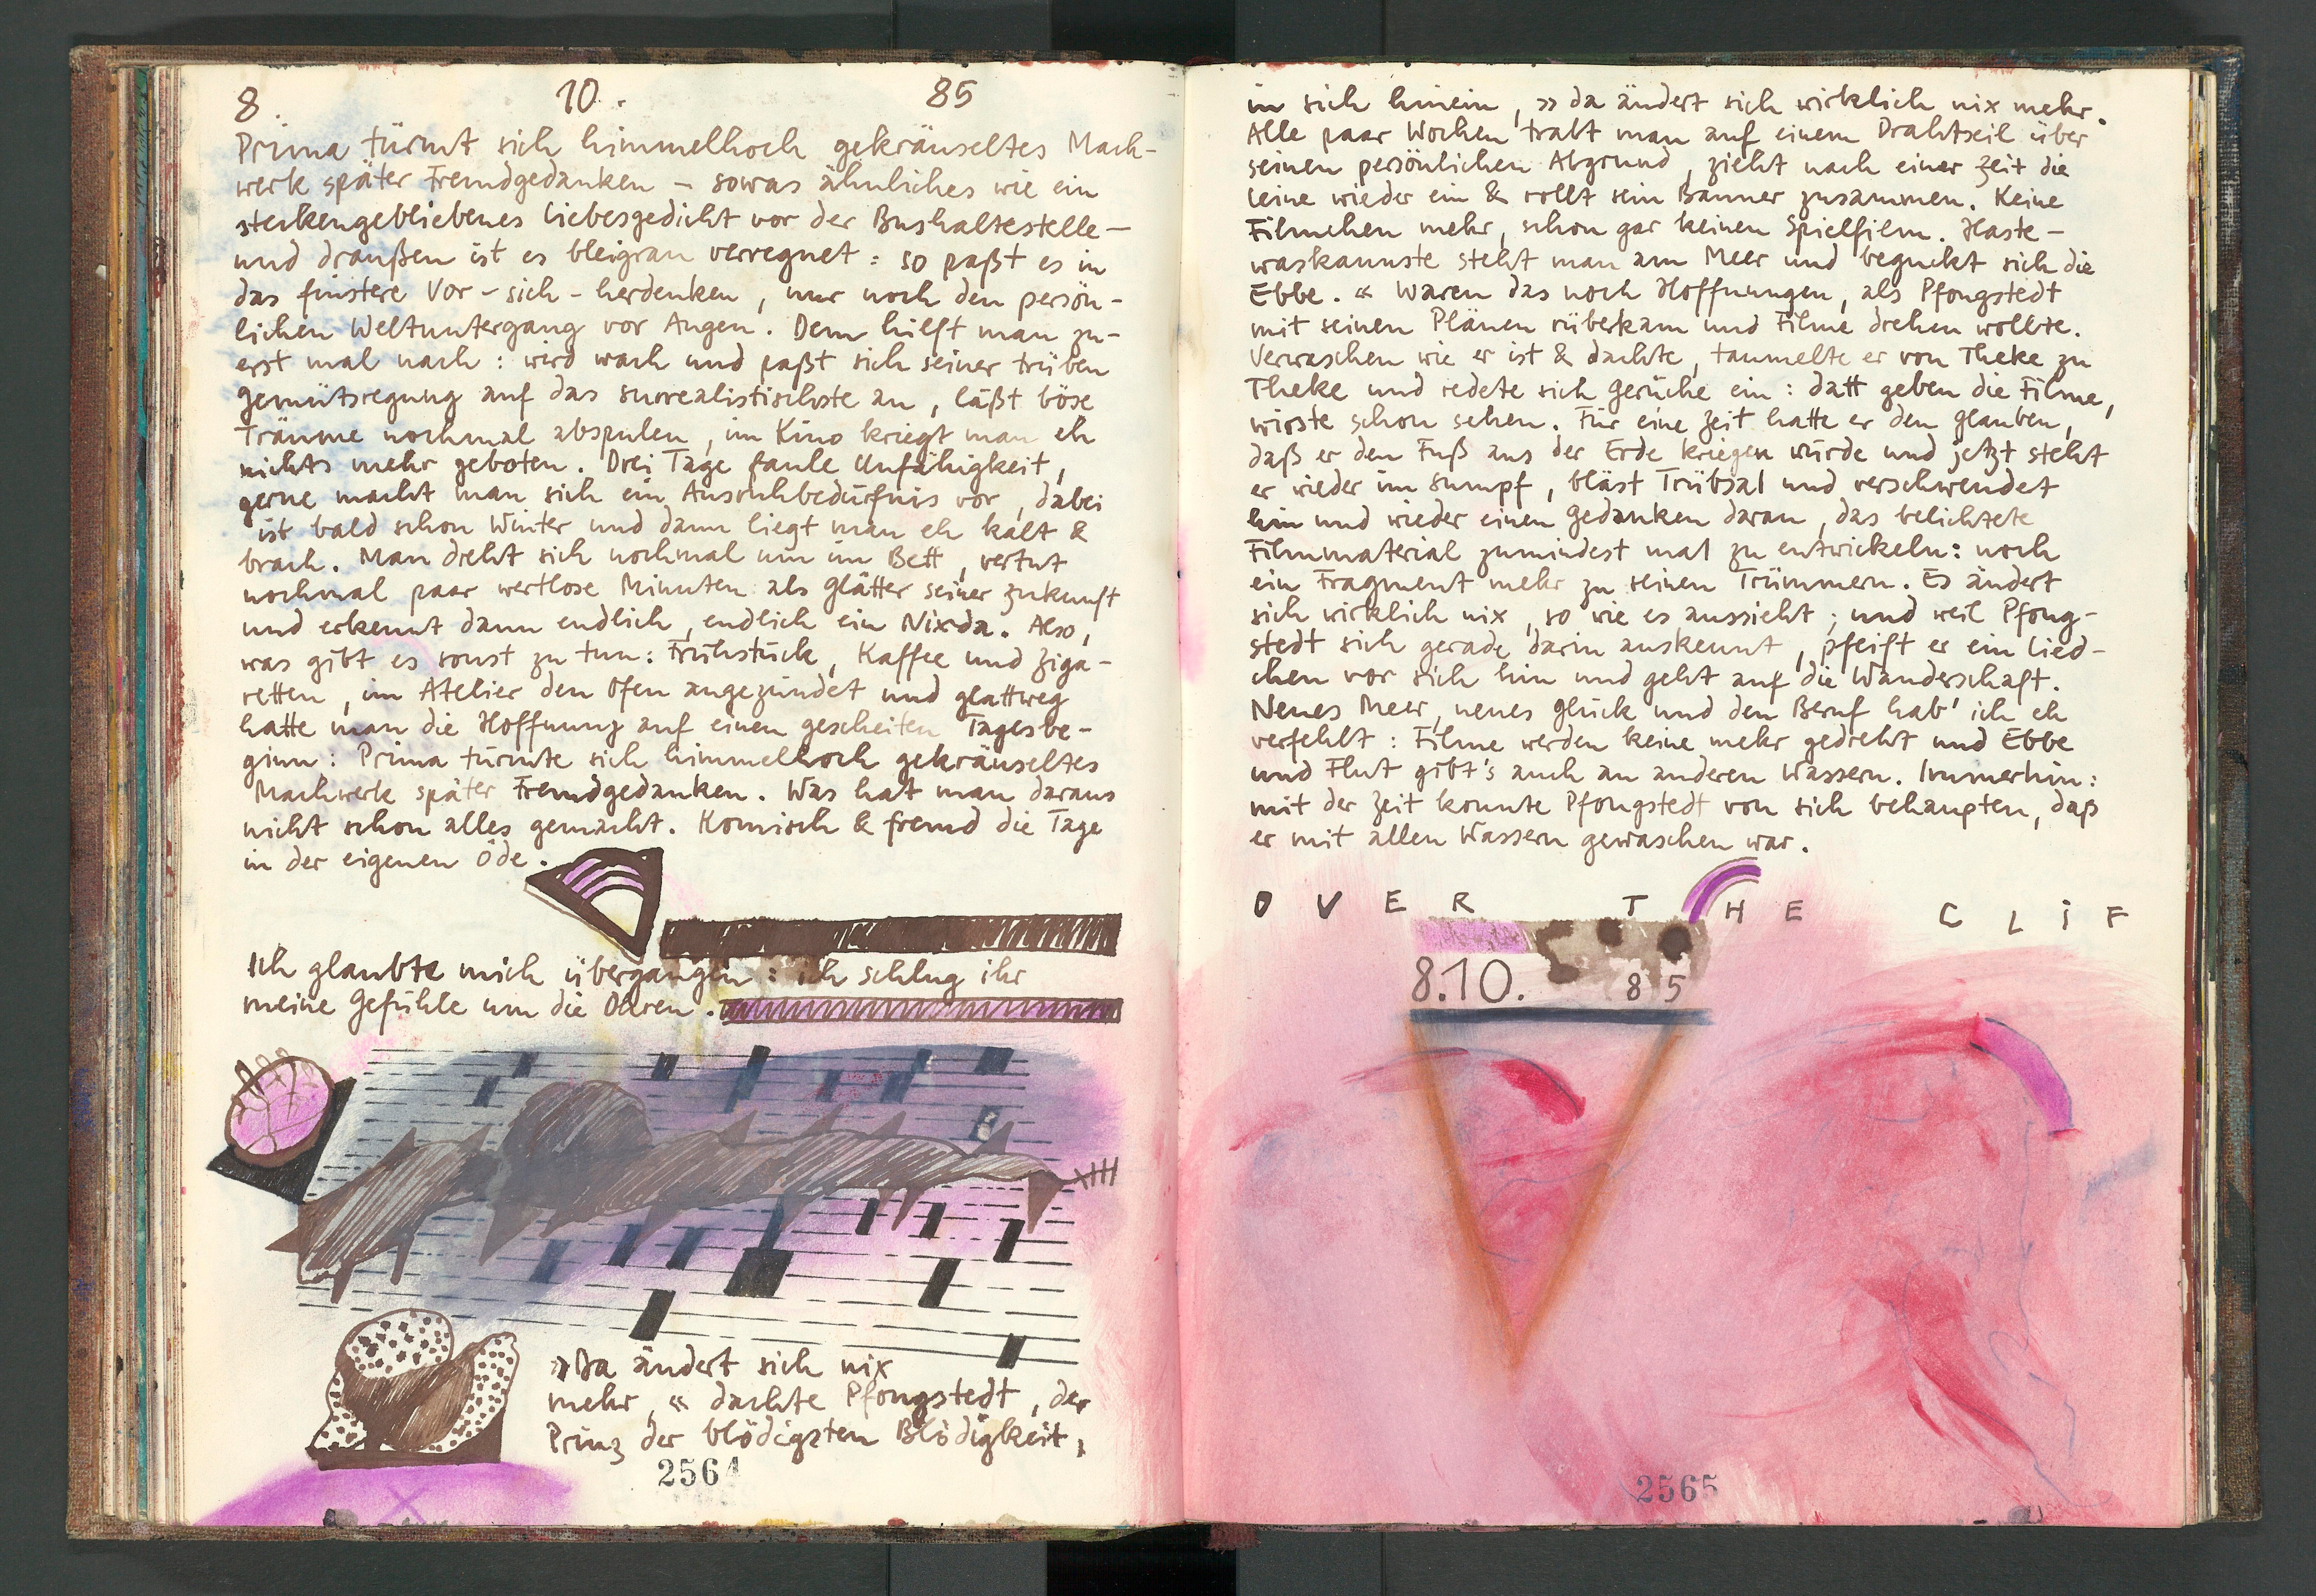 8. 10. 85
Prima türmt sich himmelhoch gekräuseltes Mach-
werk später Fremdgedanken – sowas ähnliches wie ein
steckengebliebenes Liebesgedicht vor der Bushaltestelle –
und draußen ist es bleigrau verregnet: so paßt es in
das finstere Vor-sich-herdenken, nur noch den persön-
lichen Weltuntergang vor Augen. Dem hilft man zu-
erst mal nach: wird wach und paßt sich seiner trüben
Gemütsregung auf das surrealistischste an, läßt böse
Träume nochmal abspulen, im Kino kriegt man eh
nichts mehr geboten. Drei Tage faule Unfähigkeit,
gerne macht man sich ein Ausruhbedürfnis vor, dabei
ist bald schon Winter und dann liegt man eh kalt &
brach. Man dreht sich nochmal um im Bett, vertut
nochmal paar wertlose Minuten als Glätter seiner Zukunft
und erkennt dann endlich, endlich ein Nixda. Also,
was gibt es sonst zu tun: Frühstück, Kaffee und Ziga-
retten, im Atelier den Ofen angezündet und glattweg
hatte man die Hoffnung auf einen gescheiten Tagesbe-
ginn: Prima türmte sich himmelhoch gekräuseltes
Machwerk später Fremdgedanken. Was hat man daraus
nicht schon alles gemacht. Komisch & fremd die Tage
in der eigenen Öde.
Ich glaubte mich übergangen: ich schlug ihr
meine Gefühle um die Ohren.
»Da ändert sich nix
mehr,« dachte Pfongstedt, der
Prinz der blödigsten Blödigkeit,
2564
in sich hinein, »da ändert sich wirklich nix mehr.
Alle paar Wochen trabt man auf einem Drahtseil über
seinen persönlichen Abgrund, zieht nach einer Zeit die
Leine wieder ein & rollt sein Banner zusammen. Keine
Filmchen mehr, schon gar keinen Spielfilm. Haste-
waskannste steht man am Meer und beguckt sich die
Ebbe.« Waren das noch Hoffnungen, als Pfongstedt
mit seinen Plänen rüberkam und Filme drehen wollte.
Verwaschen wie er ist & dachte, taumelte er von Theke zu
Theke und redete sich Gerüche ein: datt geben die Filme,
wirste schon sehen. Für eine Zeit hatte er den Glauben,
daß er den Fuß aus der Erde kriegen würde und jetzt steht
er wieder im Sumpf, bläst Trübsal und verschwendet
hin und wieder einen Gedanken daran, das belichtete
Filmmaterial zumindest mal zu entwickeln: noch
ein Fragment mehr zu seinen Trümmern. Es ändert
sich wirklich nix, so wie es aussieht; und weil Pfong-
stedt sich gerade darin auskennt, pfeift er ein Lied-
chen vor sich hin und geht auf die Wanderschaft.
Neues Meer, neues Glück und den Beruf hab' ich eh
verfehlt: Filme werden keine mehr gedreht und Ebbe
und Flut gibt's auch an anderen Wassern. Immerhin:
mit der Zeit konnte Pfongstedt von sich behaupten, daß
er mit allen Wassern gewaschen war.
OVER THE CLiF
8.10. 85
2565